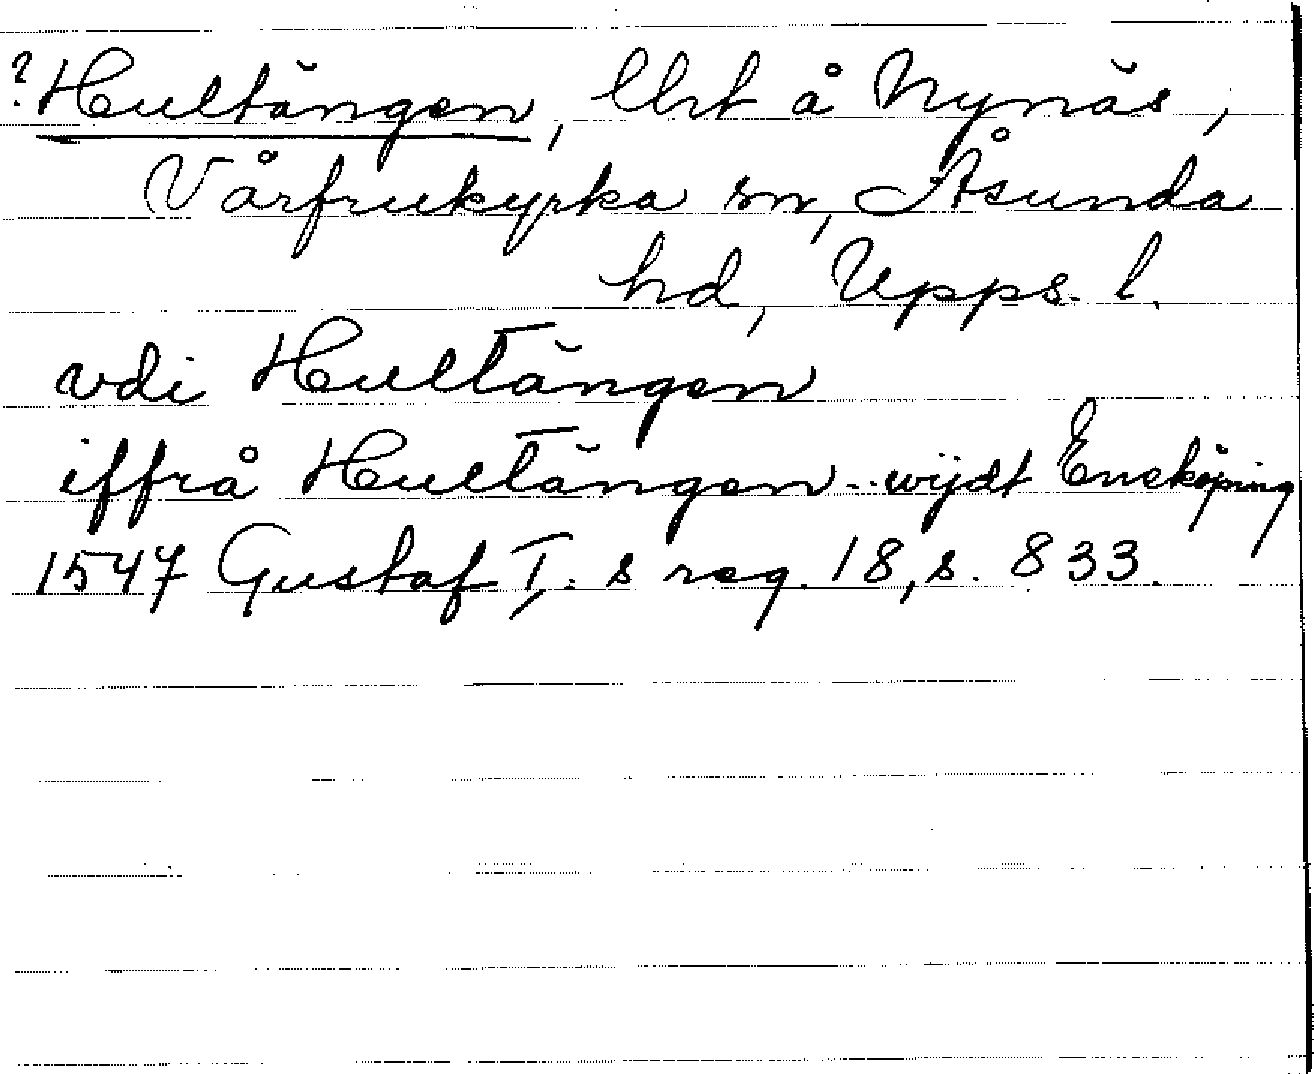 ? Hultängen, lht å Nynäs,
Vårfrukyrka sn, Åsunda
hd, Upps. l.
vdi Hultängen
iffrå Hultängen .. wijdt Eneköping
1547 Gustaf I:s reg. 18, s. 833.